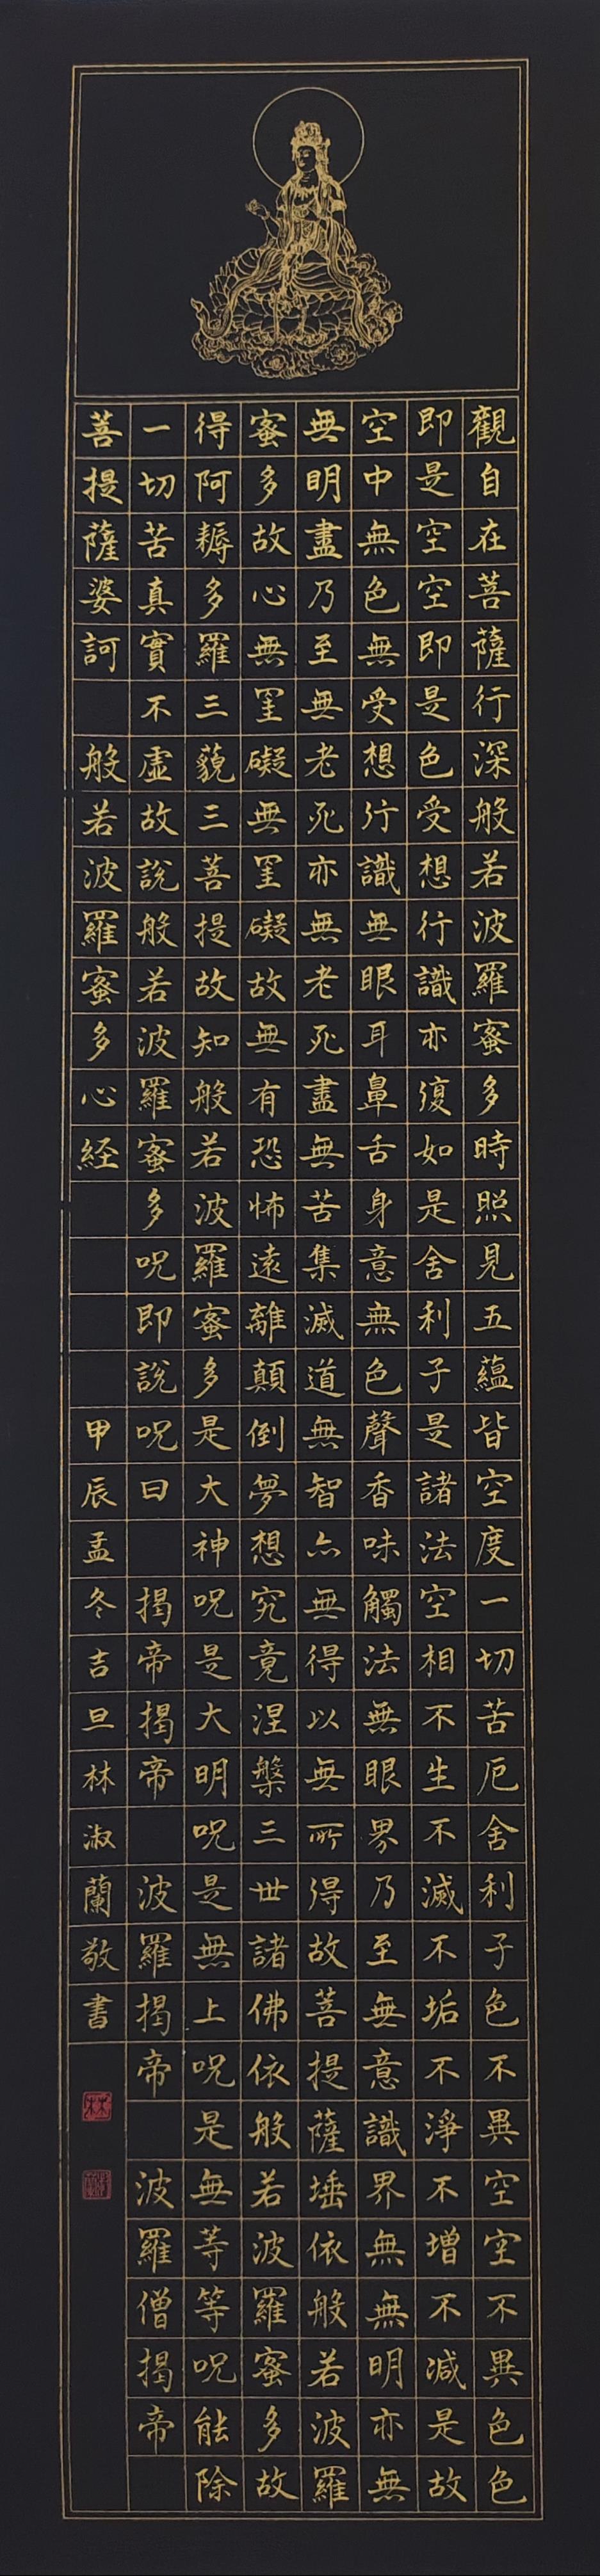 觀自在菩薩行深般若波羅蜜多時照見五蘊皆空度一切苦厄舍利子色不異空空不異色色
即是空空即是色受想行識亦復如是舍利子是諸法空相不生不滅不垢不淨不增不減是故
空中無色無受想行識無眼耳鼻舌身意無色聲香味觸法無眼界乃至無意識界無無明亦無
無明盡乃至無老死亦無老死盡無苦集滅道無智亦無得以無所得故菩提薩埵依般若波羅
蜜多故心無罣礙無罣礙故無有恐怖遠離顛倒夢想究竟涅槃三世諸佛依般若波羅蜜多故
得阿耨多羅三藐三菩提故知般若波羅蜜多是大神呪是大明呪是無上呪是無等等呪能除
一切苦真實不虛故說般若波羅蜜多呪即說呪曰 揭帝揭帝 波羅揭帝 波羅僧揭帝
菩提薩婆訶 般若波羅蜜多心経 甲辰孟冬吉旦林淑蘭敬書